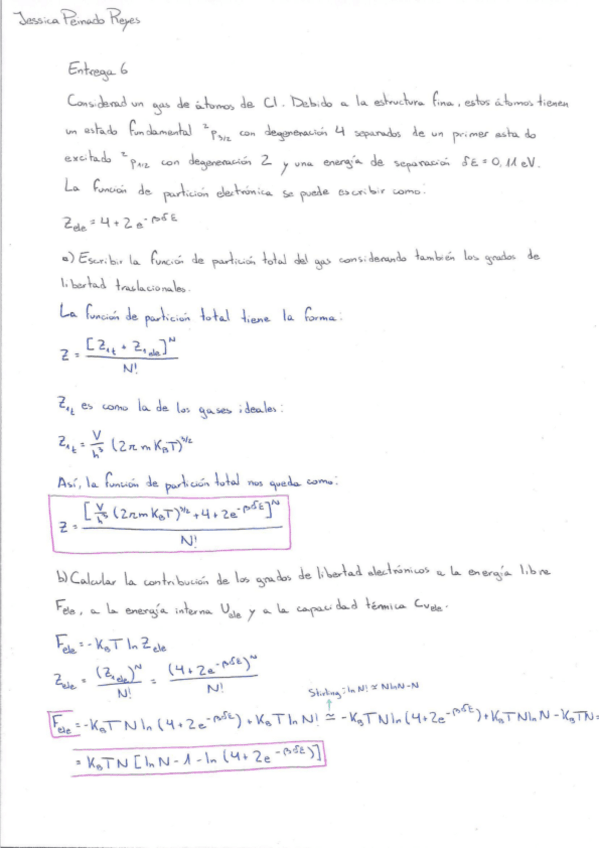 Jessica Peinado Reyes
Entrega 6
Considerad un gas de átomos de Cl. Debido a la estructura fina, estos átomos tienen
un estado fundamental ²P3/2 con degeneración 4 separados de un primer estado
excitado ²P1/2 con degeneración 2 y una energía de separación δE = 0,11 eV.
La función de partición electrónica se puede escribir como:
Zele = 4 + 2e^-βδE
a) Escribir la función de partición total del gas considerando también los grados de
libertad traslacionales.
La función de partición total tiene la forma:
Z = [Z1t + Z1ele]^N / N!
Z1t es como la de los gases ideales:
Z1t = V/h³ (2πmKBT)^3/2
Así, la función de partición total nos queda como:
Z = [V/h³ (2πmKBT)^3/2 + 4 + 2e^-βδE]^N / N!
b) Calcular la contribución de los grados de libertad electrónicos a la energía libre
Fele, a la energía interna Uele y a la capacidad térmica Cvele.
Fele = -KBT ln Zele
Zele = (Z1ele)^N / N! = (4 + 2e^-βδE)^N / N!
Stirling: ln N! ≃ N ln N - N
Fele = -KBTN ln (4 + 2e^-βδE) + KBT ln N! ≃ -KBTN ln (4 + 2e^-βδE) + KBTN ln N - KBTN =
= KBTN [ln N - 1 - ln (4 + 2e^-βδE)]